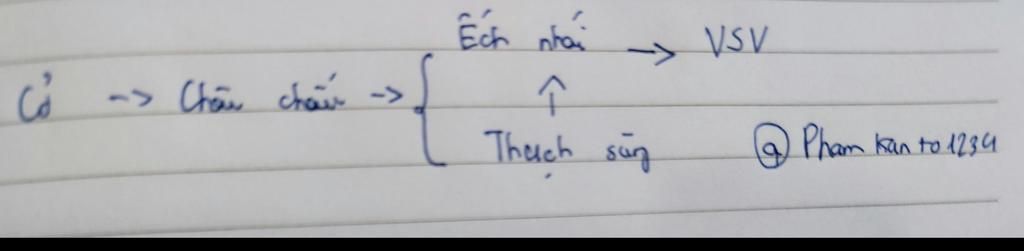 Ếch nhái → VSV
Cỏ → Châu chấu → {
↑
Thạch sùng
@ Pham kan to 1234